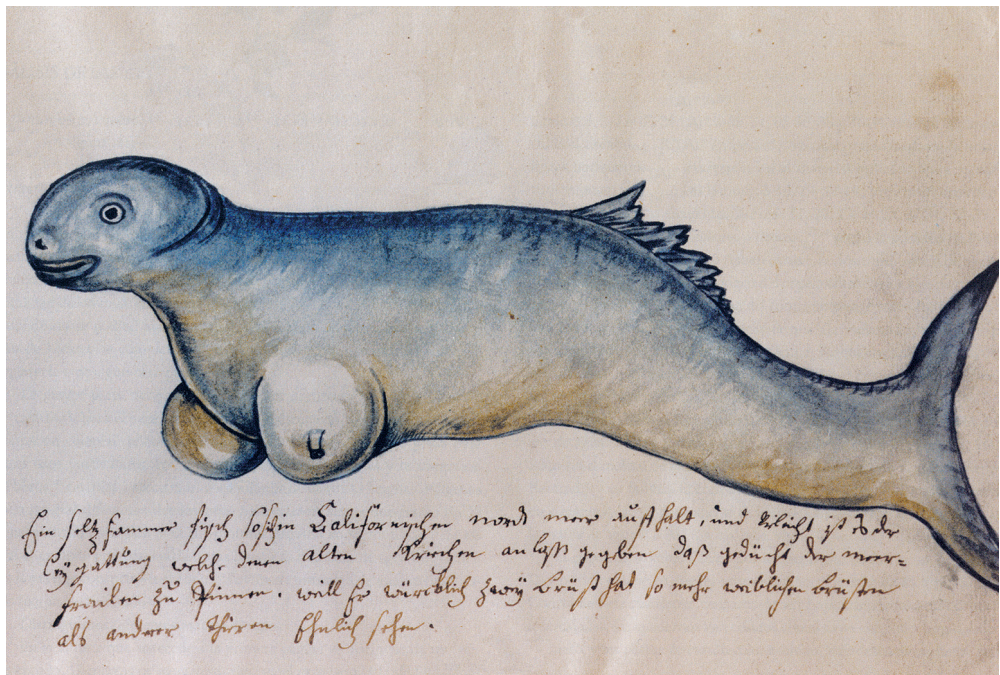 Ein seltzsammer fisch so sich in Califörnischen nordt meer aufhalt, und Vileicht ist Es der
gattung welche denen alten Kriechen anlaß gegeben daß gedücht der meer-
frailen zu Spinnen. weill Er würcklich zweÿ brüst hat so mehr weiblichen brüsten
als anderer thieren Ehnlich sehen.